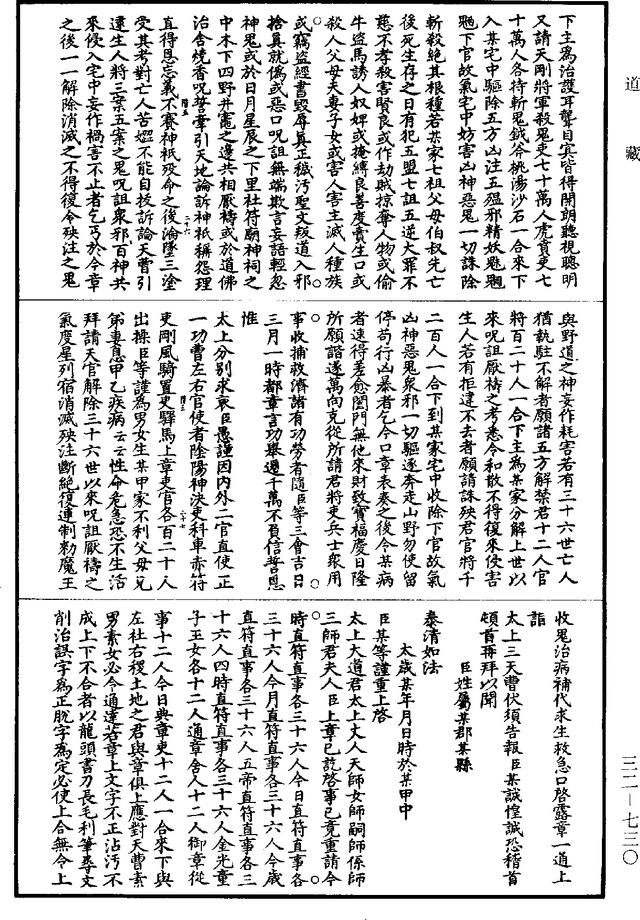 道藏
下主爲治護耳聾目盲皆得開朗聰視聰明
又請天剛將軍殺鬼吏七十萬人虎賁吏七
十萬人各持斬鬼鉞斧桃湯沙石一合來下
入某宅中驅除五方凶注五瘟邪精妖魅魍
魎下官故氣宅中妨害凶神惡鬼一切誅除
斬殺絕其根種若某家七祖父母伯叔先亡
後死生存之日有犯五盟七詛五逆大罪不
慈不孝殺害賢良或作劫賊掠奪人物或偷
牛盜馬誘人奴婢或掩縛良善度賣生口或
殺人父母夫妻子女或害人害主滅人種族
或竊盜經書毀辱真正穢污聖文叛道入邪
捨真就僞或惡口呪詛無端欺言妄語輕忽
神鬼或於日月星辰之下里社符廟神祠之
中木下四野井竈之邊共相厭禱或於道佛
治舍燒香呪誓牽引天地論訴神祇稱怨理
直得恩忘義不賽神祇歿命之後淪墮三塗
受其考對亡人苦㜸不能自拔訴論天曹引
逮生人將三案五案之鬼呪詛衆邪百神共
來侵入宅中妄作禍害不止者乞丐於今章
之後一一解除消滅之不得復令殃注之鬼
與野道之神妄作耗害若有三十六世亡人
猶執駐不解者願請五方解禁君十二人官
將百二十人一合下主爲某家分解上世以
來呪詛厭禱之考悉令和散不得復來侵害
生人若有拒違不去者願請誅殃君官將千
二百人一合下到某家宅中收除下官故氣
凶神惡鬼衆邪一切驅逐奔走山野勿使留
停苛行凶暴者乞今口章表奏之後令某病
者速得差愈闔門無他來財致寶福慶日隆
所願諧遂萬向克從所請君將吏兵士衆用
事收捕救濟諸有功勞者隨臣等三會吉日
三月一時都章言功舉遷千萬不負信誓恩
惟
太上分別求哀臣愚謹因內外二官直使正
一功曹左右官使者陰陽神決吏科車赤符
吏剛風騎置吏驛馬上章吏官各百二十人
出操臣等謹為男女生某甲家不利父母兄
弟妻息甲乙疾病云云性命危急恐不生活
拜請天官解除三十六世以來呪詛厭禱之
氣度星列宿消滅殃注斷絕復連制勑魔王
收鬼治病補代求生救急口啓露章一通上
詣
太上三天曹伏須告報臣某誠惶誠恐稽首
頓首再拜以聞
臣姓屬某郡某縣
泰清如法
太歲某年月日時於某甲中
臣某等謹重上啓
太上大道君太上丈人天師女師嗣師係師
三師君夫人臣上章已訖啓事已竟重請今
時直符直事各三十六人今日直符直事各
三十六人今月直符直事各三十六人今歲
直符直事各三十六人五帝直符直事各三
十六人四時直符直事各三十六人金光童
子玉女各十二人通章舍人十二人御章從
事十二人今日典章吏十二人一合來下與
左社右稷土地之君與章俱上應對天曹素
男素女必令通達若章上文字不正沾污不
成上下不合者以龍頭書刀長毛利筆尋文
削治誤字爲正脫字爲定必使上合無令上
三二—七三〇